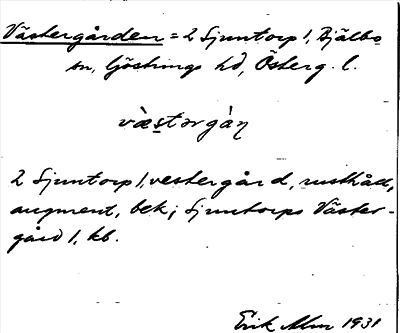 Västergården = 2 Sjuntorp 1, Bjälbo
sn, Göstrings hd, Österg. l.
væ̀stərgàɳ
2 Sjuntorp 1, vestergård, rusthåd,
augment, bek; Sjuntorps Väster-
gård 1, kb.
Erik Alm 1931